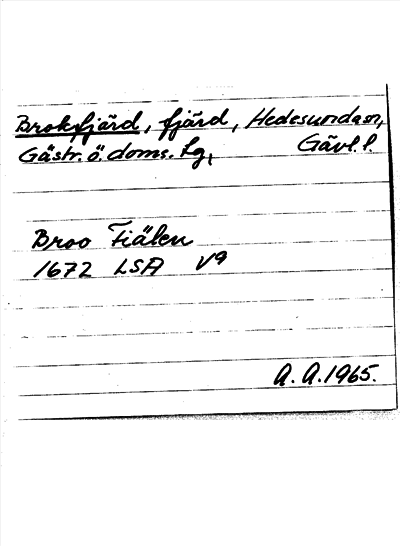 Broksfjärd, fjärd, Hedesunda sn,
Gästr. ö. doms. lg, Gävl. l.
Broo Fiälen
1672 LSA V9
A. A. 1965.